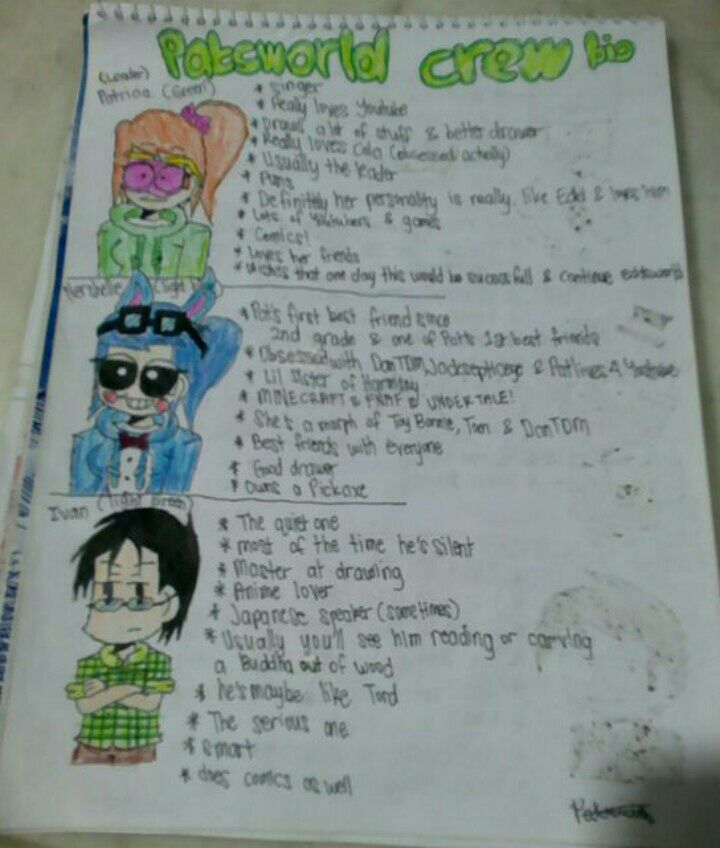 Patsworld crew bio
(Leader)
Patricia (Green)
* Singer
* Really loves Youtube
* Draws a lot of stuff & better drawer
* Really loves Cola (obsessed actually)
* Usually the leader
* Puns
* Definitely her personality is really like Edd & loves him
* Lots of Youtubers & games
* Comics!
* Loves her friends
* Wishes that one day this would be successfull & continue eddsworld
(Light
* Pat's first best friend since
2nd grade & one of Pat's 1st best friends
* Obsessed with DanTDM, Jacksepticeye & 4 Youtube
* Lil Sister of Harmony
* MINECRAFT & FNAF & UNDERTALE!
* She's a morph of Toy Bonnie, Tom & DanTDM
* Best friends with everyone
* Good drawer
* Owns a Pickaxe
Ivan (Light Green)
* The quiet one
* most of the time he's silent
* Master at drawing
* Anime lover
* Japanese speaker (sometimes)
* Usually you'll see him reading or carving
a Buddha out of wood
* he's maybe like Tord
* The serious one
* smart
* does comics as well